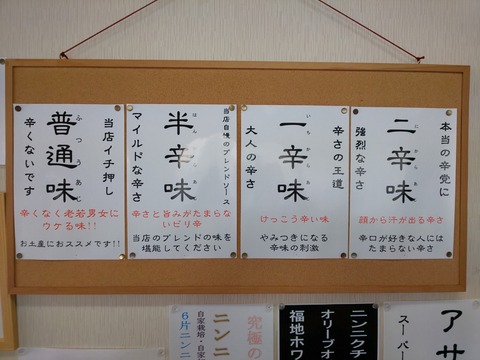 本当の辛党に
二辛味
にからあじ
強烈な辛さ
顔から汗が出る辛さ
辛口が好きな人には
たまらない辛さ
辛さの王道
一辛味
いちからあじ
大人の辛さ
けっこう辛い味
やみつきになる
辛味の刺激
当店自慢のブレンドソース
半辛味
マイルドな辛さ
辛さと旨みがたまらな
いピリ辛
当店のブレンドの味を
堪能してください
当店イチ押し
普通味
ふつうあじ
辛くないです
辛くなく老若男女に
ウケる味!!
お土産におススメです!!
アサ
スーパ
ニンニク
オリーブオ
福地ホワ
究極の
ニンニ
自家栽培・自家
6片ニンニ